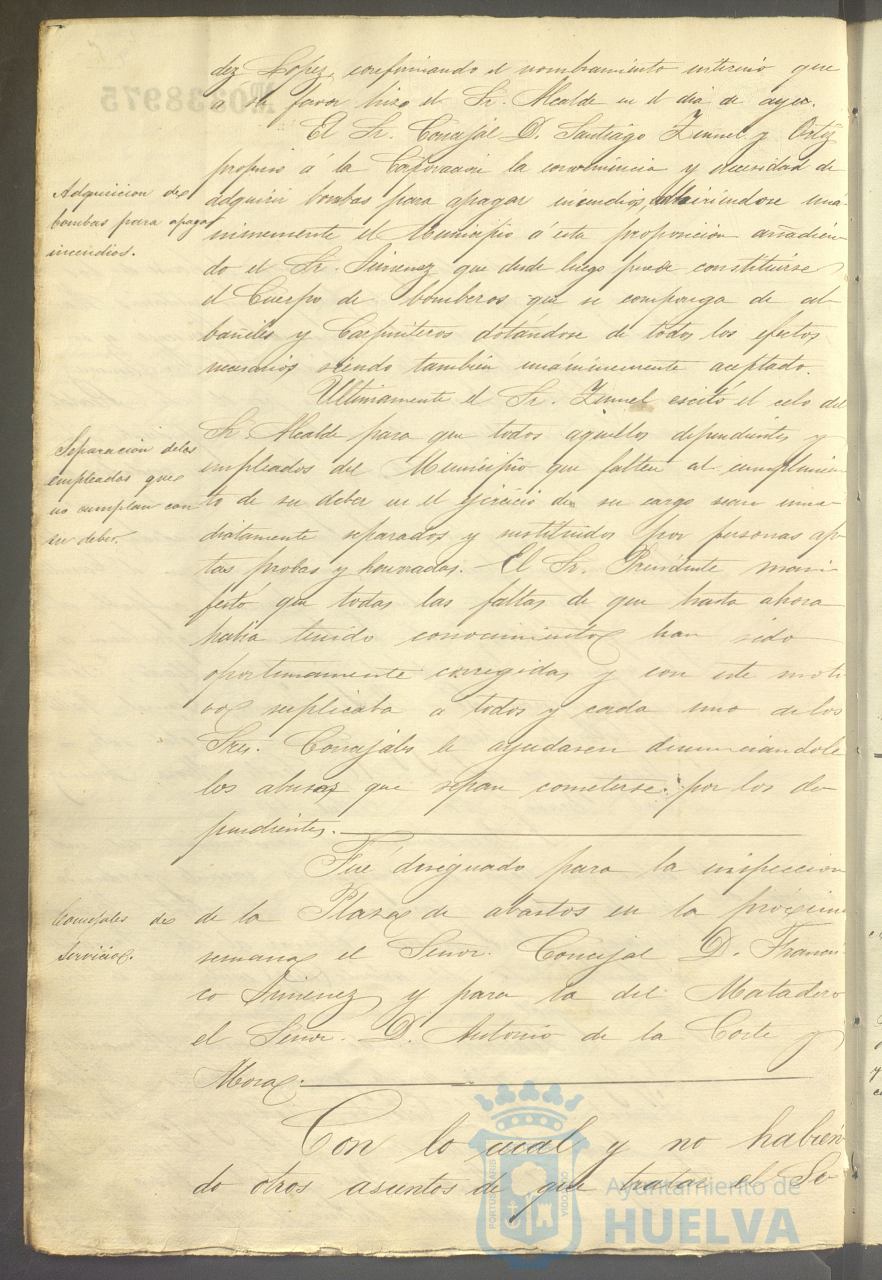 dez Lopez, confirmando el nombramiento interino que
a su favor hizo el Sr. Alcalde en el dia de ayer.
El Sr. Concejal D. Santiago Zinnel y Ortiz
propuso á la Corporacion la conveniencia y necesidad de
Adquisicion de
bombas para apagar
incendios.
adquirir bombas para apagar incendios, adhiriendose uná-
nimemente el Municipio á esta proposicion añadien-
do el Sr. Jimenez que desde luego puede constituirse
el Cuerpo de bomberos que se componga de al-
bañiles y Carpinteros dotándose de todos los efectos
necesarios, siendo tambien unánimemente aceptado.
Ultimamente el Sr. Zinnel escitó el celo del
Separacion de los
empleados que
no cumplan con
su deber.
Sr. Alcalde para que todos aquellos dependientes y
empleados del Municipio que falten al cumplimien-
to de su deber en el ejercicio de su cargo sean inme-
diatamente separados y sustituidos por personas ap-
tas probas y honradas. El Sr. Presidente mani-
festó que todas las faltas de que hasta ahora
habia tenido conocimiento han sido
oportunamente corregidas y con este moti-
vo suplicaba a todos y cada uno de los
Sres. Concejales le ayudasen denunciándole
los abusos que sepan cometerse por los de-
pendientes.
Fué designado para la inspeccion
Concejales de
Servicio.
de la Plaza de abastos en la próxima
semana el Señor Concejal D. Francis-
co Jimenez y para la del Matadero
el Señor D. Antonio de la Corte y
Mora.
Con lo cual y no habien-
do otros asuntos de que tratar el Se-
PORTUS MARIS
VIDO
Ayuntamiento de
HUELVA